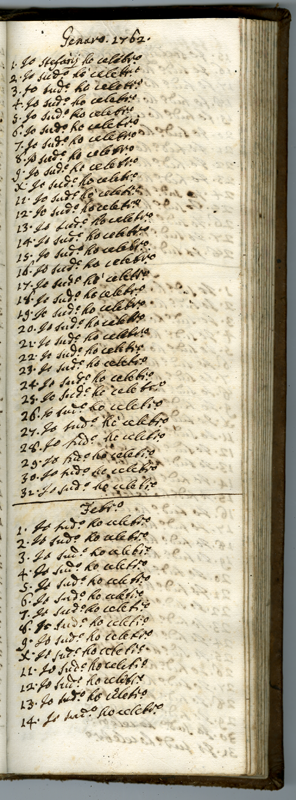 Genaro. 1762.
1. Io Stefanij ho celebro
2. Io sudo ho celebro
3. Io sudo ho celebro
4. Io sudo ho celebro
5. Io sudo ho celebro
6. Io sudo ho celebro
7. Io sudo ho celebro
8. Io sudo ho celebro
9. Io sudo ho celebro
X. Io sudo ho celebro
11. Io sudo ho celebro
12. Io sudo ho celebro
13. Io sudo ho celebro
14. Io sudo ho celebro
15. Io sudo ho celebro
16. Io sudo ho celebro
17. Io sudo ho celebro
18. Io sudo ho celebro
19. Io sudo ho celebro
20. Io sudo ho celebro
21. Io sudo ho celebro
22. Io sudo ho celebro
23. Io sudo ho celebro
24. Io sudo ho celebro
25. Io sudo ho celebro
26. Io sudo ho celebro
27. Io sudo ho celebro
28. Io sudo ho celebro
29. Io sudo ho celebro
30. Io sudo ho celebro
31. Io sudo ho celebro
Febro
1. Io sudo ho celebro
2. Io sudo ho celebro
3. Io sudo ho celebro
4. Io sudo ho celebro
5. Io sudo ho celebro
6. Io sudo ho celebro
7. Io sudo ho celebro
8. Io sudo ho celebro
9. Io sudo ho celebro
X. Io sudo ho celebro
11. Io sudo ho celebro
12. Io sudo ho celebro
13. Io sudo ho celebro
14. Io sudo ho celebro